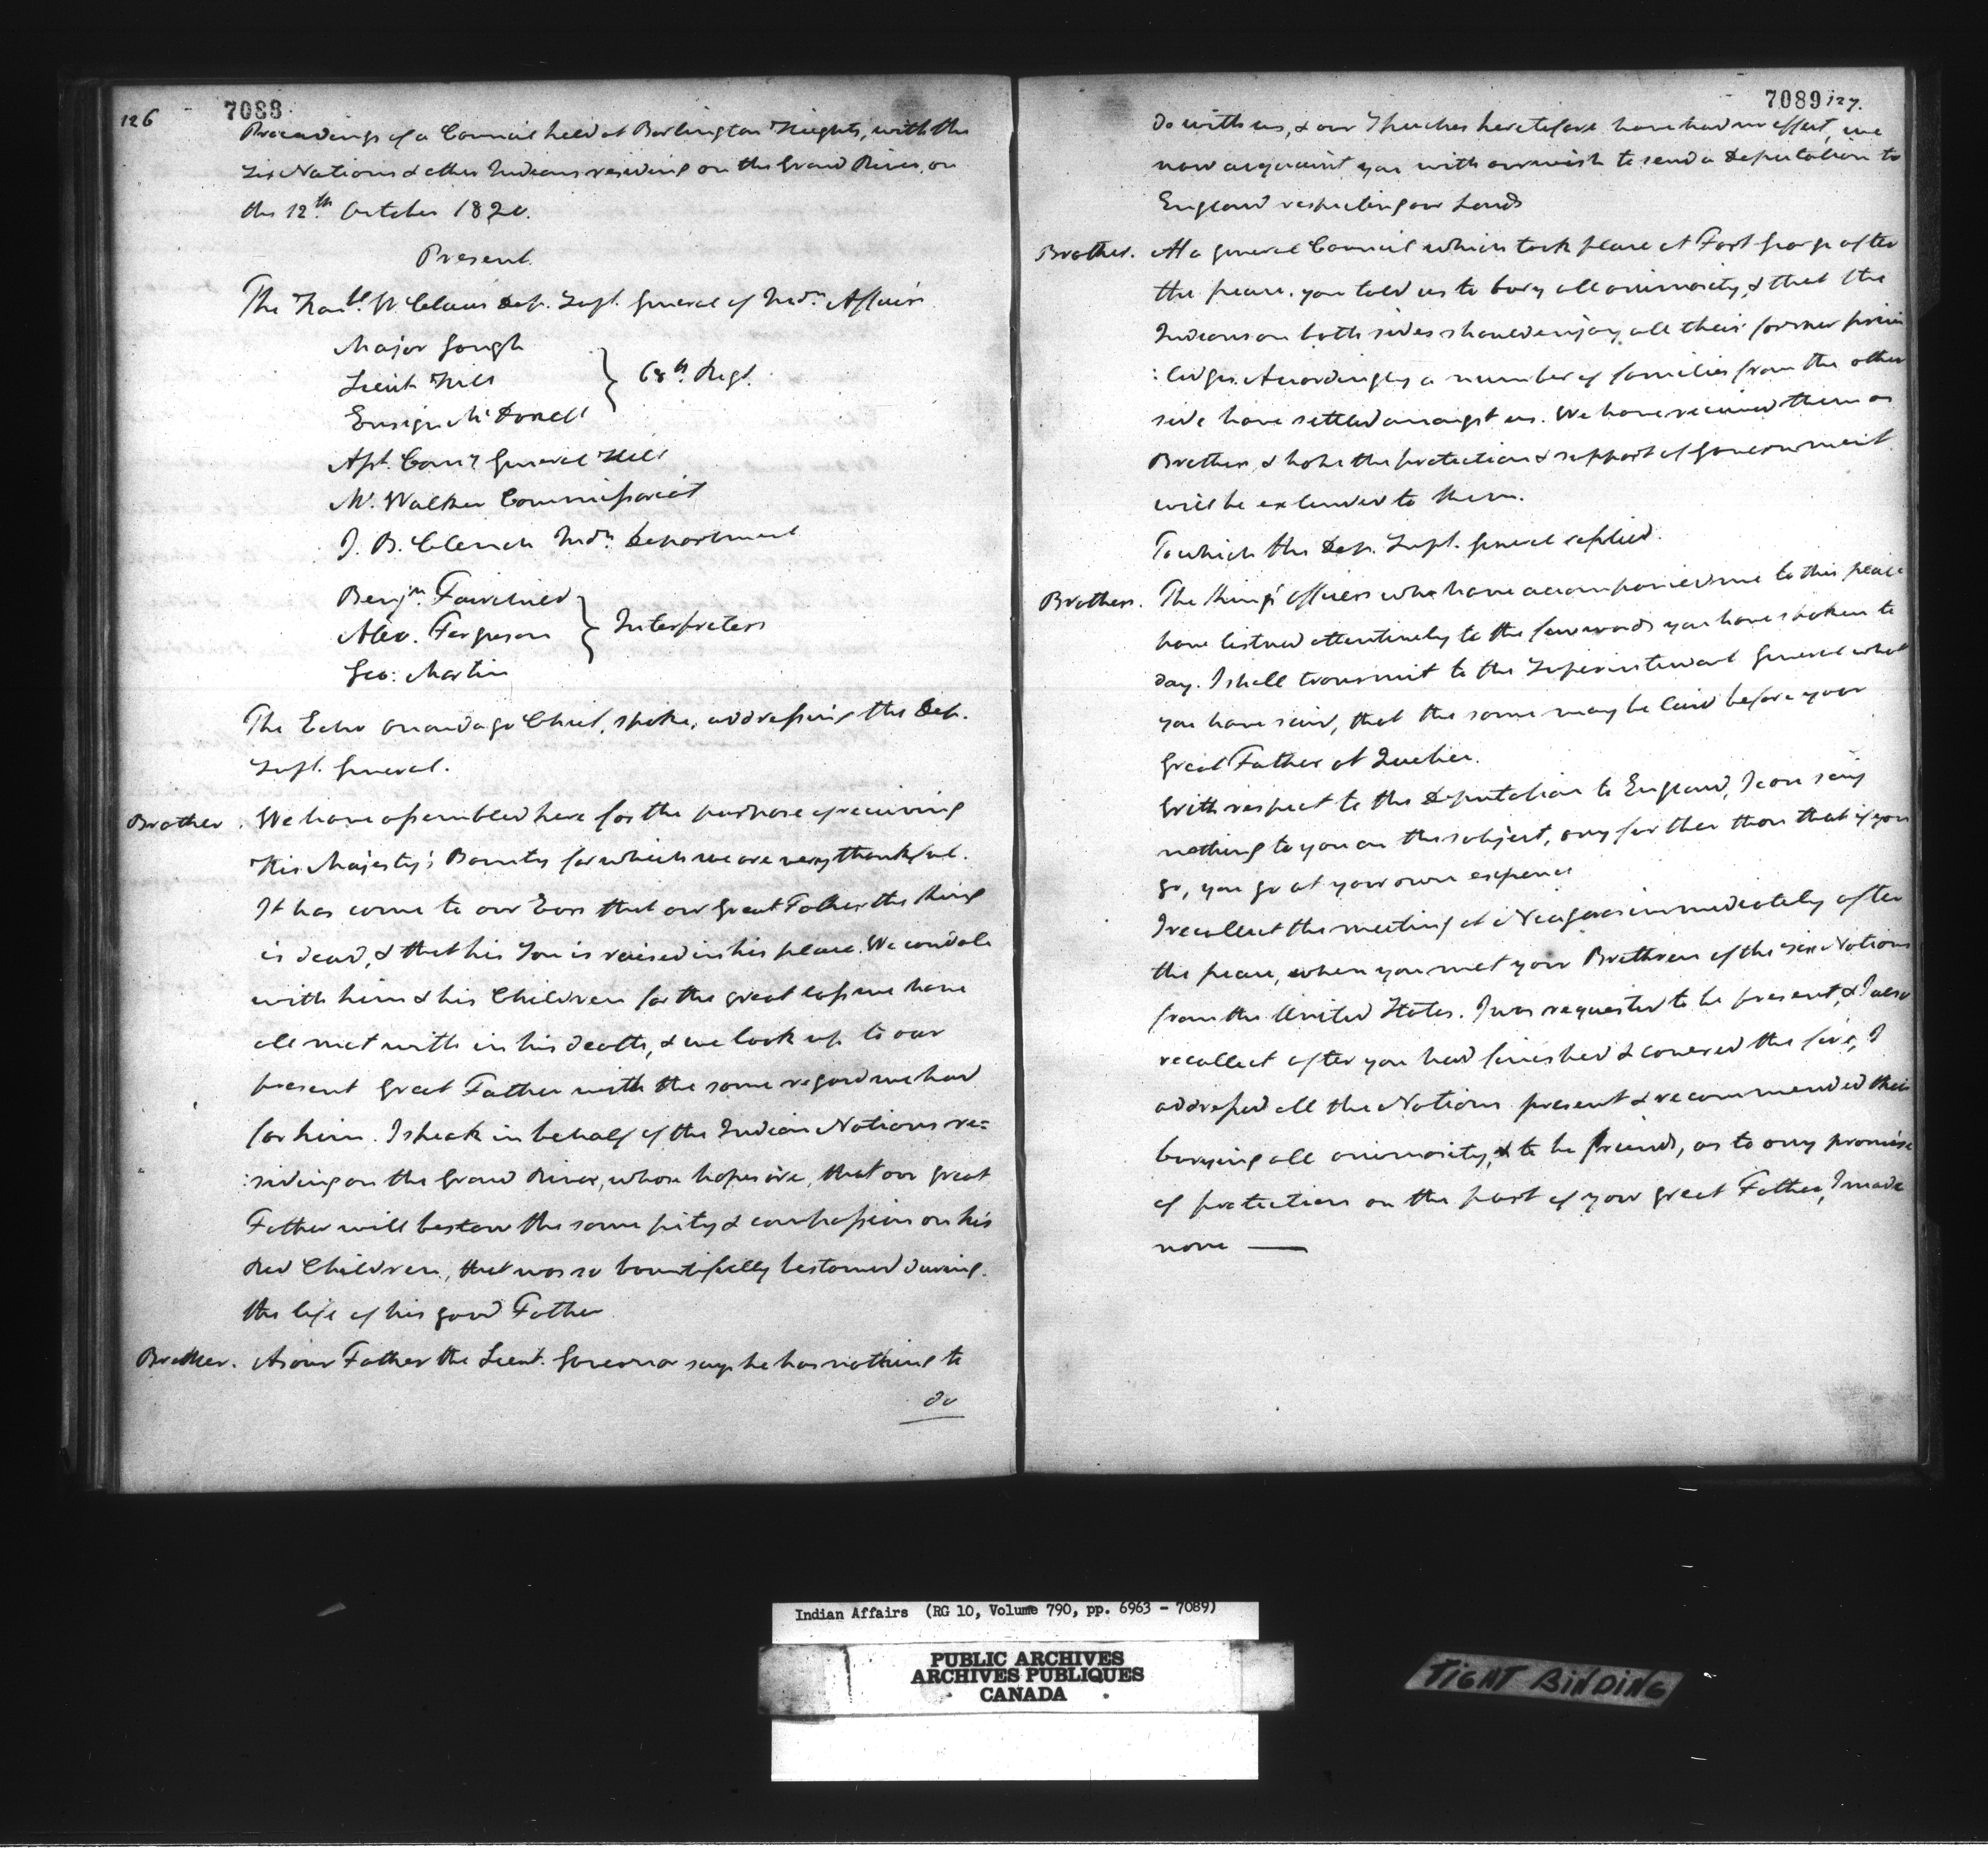 126
7088
Proceedings of a Council held at Burlington Heights, with the
Six Nations & other Indians residing on the Grand River, on
the 12th. October 1820.
Present
The Honble. W. Claus Dep. Supt. General of Indn. Affairs
Major Gough
Lieut Hill
Ensign McDonell
} 68th. Regt.
Asst. Comy General Hill
Mr. Walker Commissariat
J. B. Clench Indn. Department
Benjn. Fairchild
Alex. Ferguson
} Interpreters
Geo: Martin
The Echo Onondaga Chief, spoke, addressing the Dep.
Supt. General.
Brother. We have assembled here for the purpose of receiving
His Majesty's Bounty for which we are very thankful.
It has come to our Ears that our great Father the King
is dead, & that his Son is raised in his place. We condole
with him & his Children for the great loss we have
all met with in his death, & we look up to our
present great Father with the same regard we had
for him. I speak in behalf of the Indian Nations re=
:siding on the Grand River, whose hopes are, that our great
Father will bestow the same pity & compassion on his
Red Children, that was so bountifully bestowed during
the life of his good Father
Brother. As our Father the Lieut. Governor says he has nothing to
do
7089 127.
do with us, & our Speeches heretofore have had no effect, we
now acquaint you with our wish to send a Deputation to
England respecting our Lands
Brother. At a general Council which took place at Fort George after
the peace. you told us to bury all animosity, & that the
Indians on both sides should enjoy all their former privi
:ledges. Accordingly a number of families from the other
side have settled amongst us. We have received them as
Brothers, & hope the protection & support of Government
will be extended to them.
To which the Dep. Supt. General replied.
Brothers. The King's officers who have accompanied me to this place
have listned attentively to the few words you have spoken to
day. I shall transmit to the Superintendant General what
you have said, that the same may be laid before your
Great Father at Quebec.
With respect to the Deputation to England, I can say
nothing to you on the subject, any further than that if you
go, you go at your own expence
I recollect the meeting at Niagara immediately after
the peace, when you met your Brethren of the Six Nations
from the United States. I was requested to be present, & I also
recollect after you had finished & covered the fire, I
addressed all the Nations present & recommended their
burying all animosity, & to be friends, as to any promise
of protection on the part of your great Father, I made
none —
Indian Affairs (RG 10, Volume 790, pp. 6963 - 7089)
PUBLIC ARCHIVES
ARCHIVES PUBLIQUES
CANADA
TIGHT BINDING